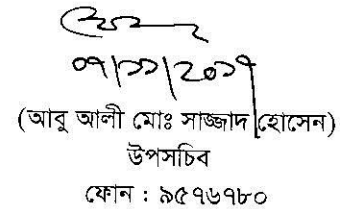 ০৭/১১/২০১৭
(আবু আলী মোঃ সাজ্জাদ হোসেন)
উপসচিব
ফোন : ৯৫৭৬৭৮০